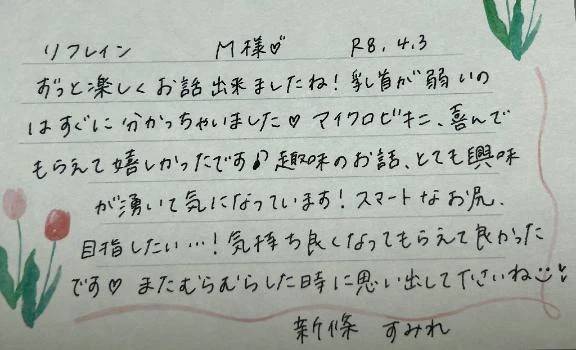 リフレイン M様♡ R8.4.3
ずっと楽しくお話出来ましたね！乳首が弱いの
はすぐに分かっちゃいました♡ マイクロビキニ、喜んで
もらえて嬉しかったです♪ 趣味のお話、とても興味
が湧いて気になっています！スマートなお尻、
目指したい…！気持ち良くなってもらえて良かった
です♡ またむらむらした時に思い出して下さいね
新條 すみれ